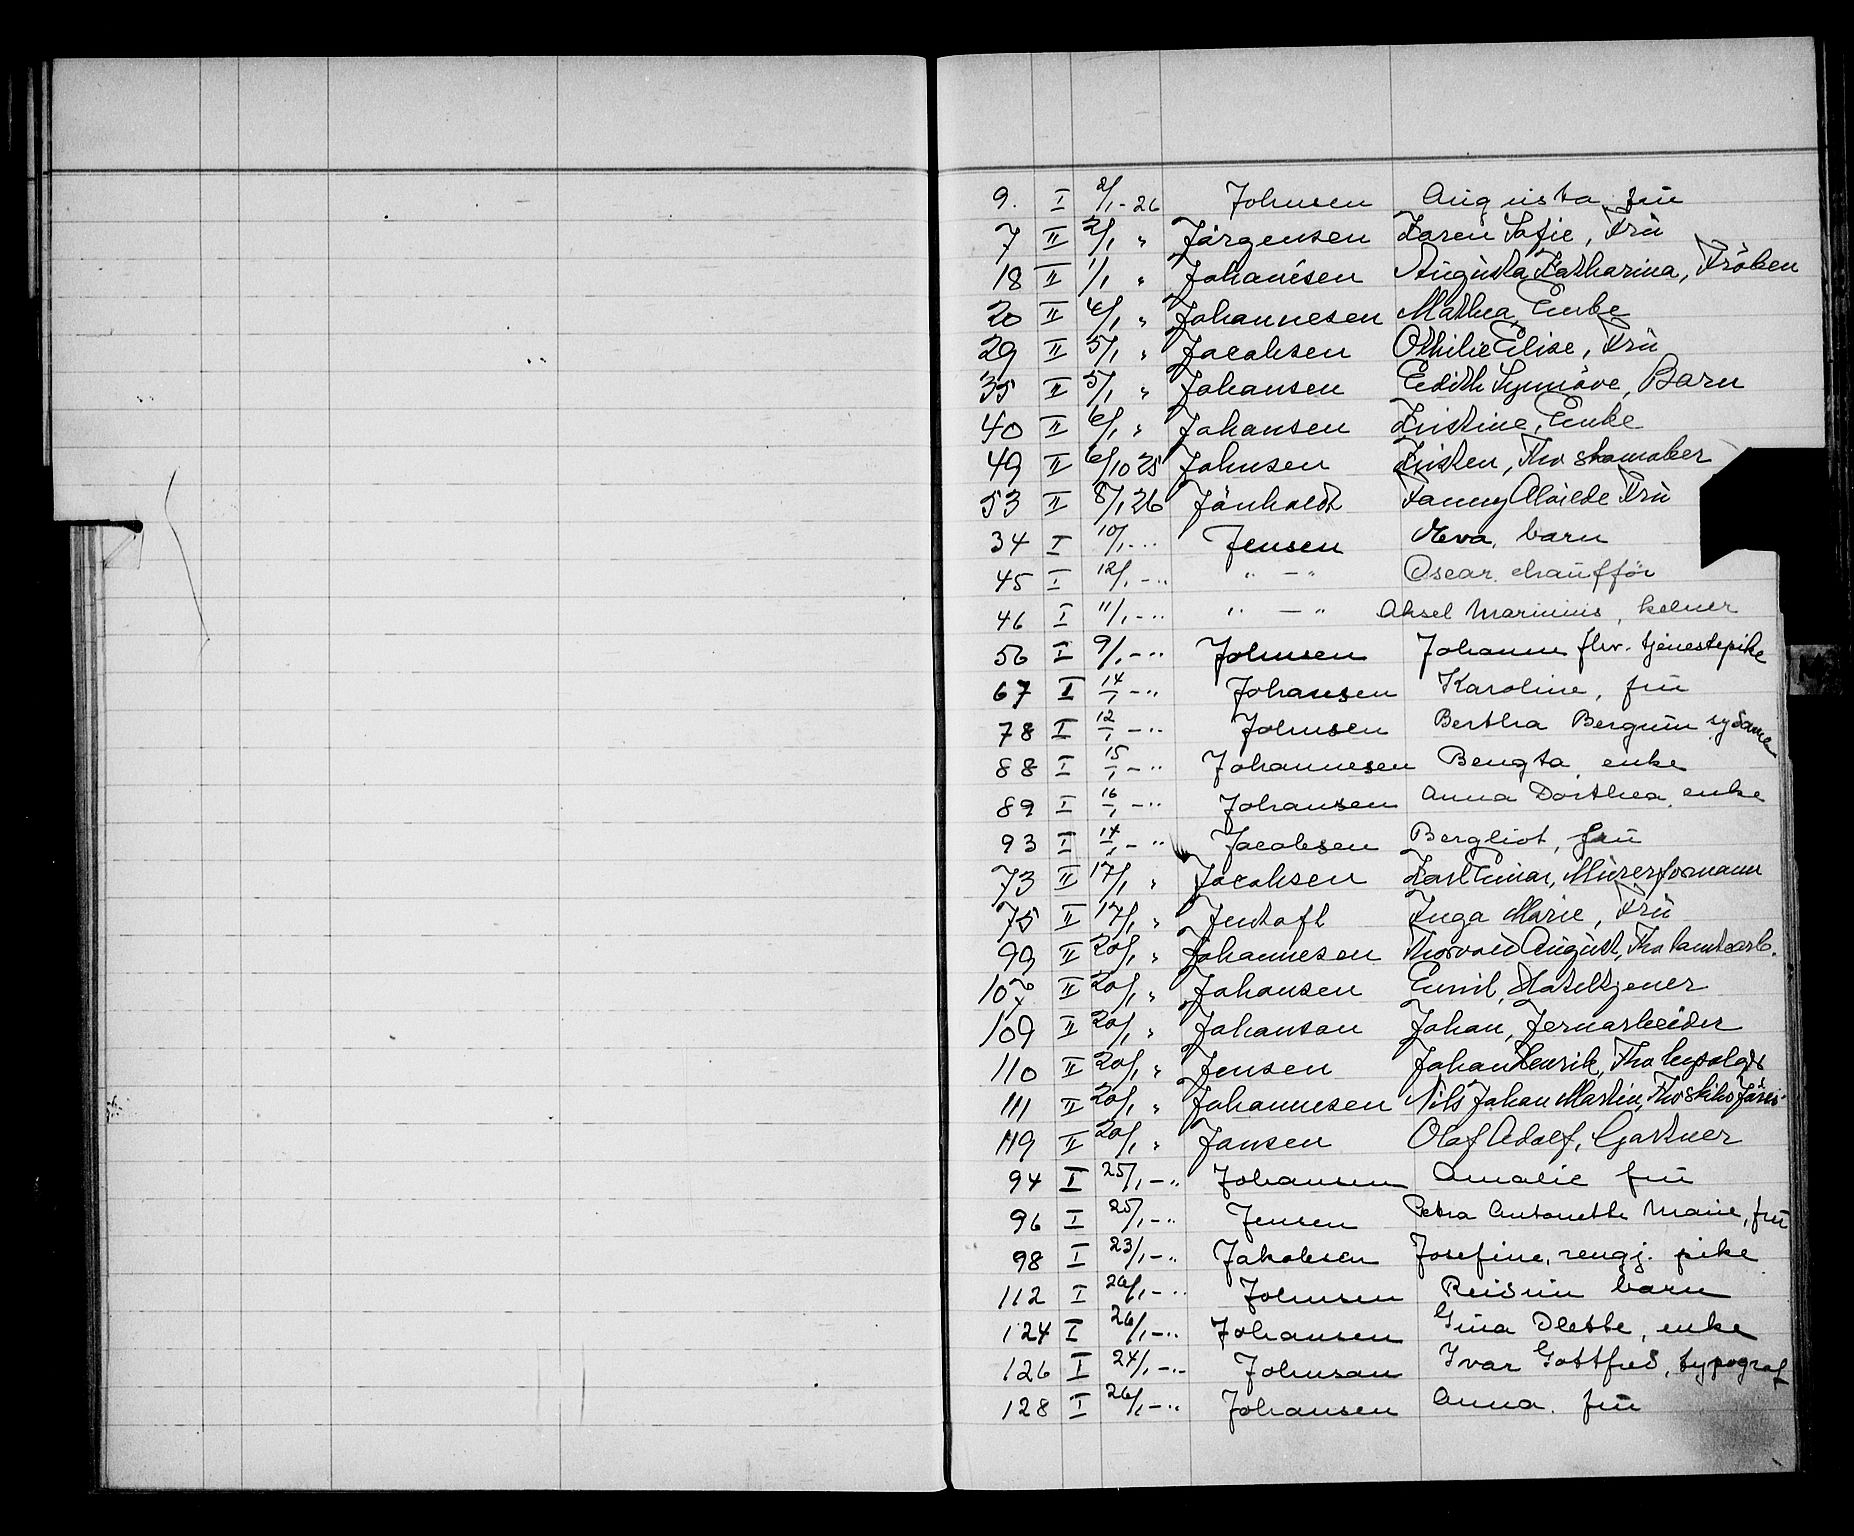 9. I 2/1 - 26 Johnsen Augusta, frü
7 II 2/1 " Jörgensen Karen Sofie, Frü
18 II 1/1 " Johansen Augusta Katharina, Fröken
20 II 4/1 " Johannesen Mathea, Enke
29 II 5/1 " Jacobsen Othilie Elise, Frü
35 II 5/1 " Johansen Edith Synnöve, Barn
40 II 6/1 " Johansen Kristine, Enke
49 II 6/10 25 Johnsen Kristen, Fhv skomaker
53 II 8/1 26 Jönholdt Fanny Alvilde Frü
34 I 10/1 - " Jensen Eva, barn
45 I 12/1 - " " - " Oscar, chaufför
46 I 11/1 - " " - " Aksel Marinius, kelner
56 I 9/1 - " Johnsen Johanne fhv. tjenestepike
67 I 14/1 - " Johansen Karoline, frü
78 I 12/1 - " Johnsen Bertha Bergum sydame
88 I 15/1 - " Johannesen Bengta, enke
89 I 16/1 - " Johansen Anna Dorthea, enke
93 I 14/1 - " Jacobsen Bergliot, frü
73 II 17/1 " Jacobsen Karl Einar, Mürerformann
75 II 17/1 " Jentoft Inga Marie, Frü
99 II 20/1 " Johannesen Thorvald August, Fhv tomtearb.
107 II 20/1 " Johansen Emil, Hoteltjener
109 II 20/1 " Johanson Johan, Jernarbeider
110 II 20/1 " Jensen Johan Henrik, Fhv
111 II 20/1 " Johannesen Nils Johan Martin, Fhv Skibsförer
119 II 20/1 " Jansen Olaf Adolf, Gartner
94 I 25/1 - " Johansen Amalie frü
96 I 25/1 - " Jensen Petra Antonette Marie, frü
98 I 23/1 - " Jakobsen Josefine, rengj. pike
112 I 26/1 - " Johnsen Reidun barn
124 I 26/1 - " Johansen Gina Olette, enke
126 I 24/1 - " Johnson Ivar Gottfred, typograf
128 I 26/1 - " Johansen Anna, frü